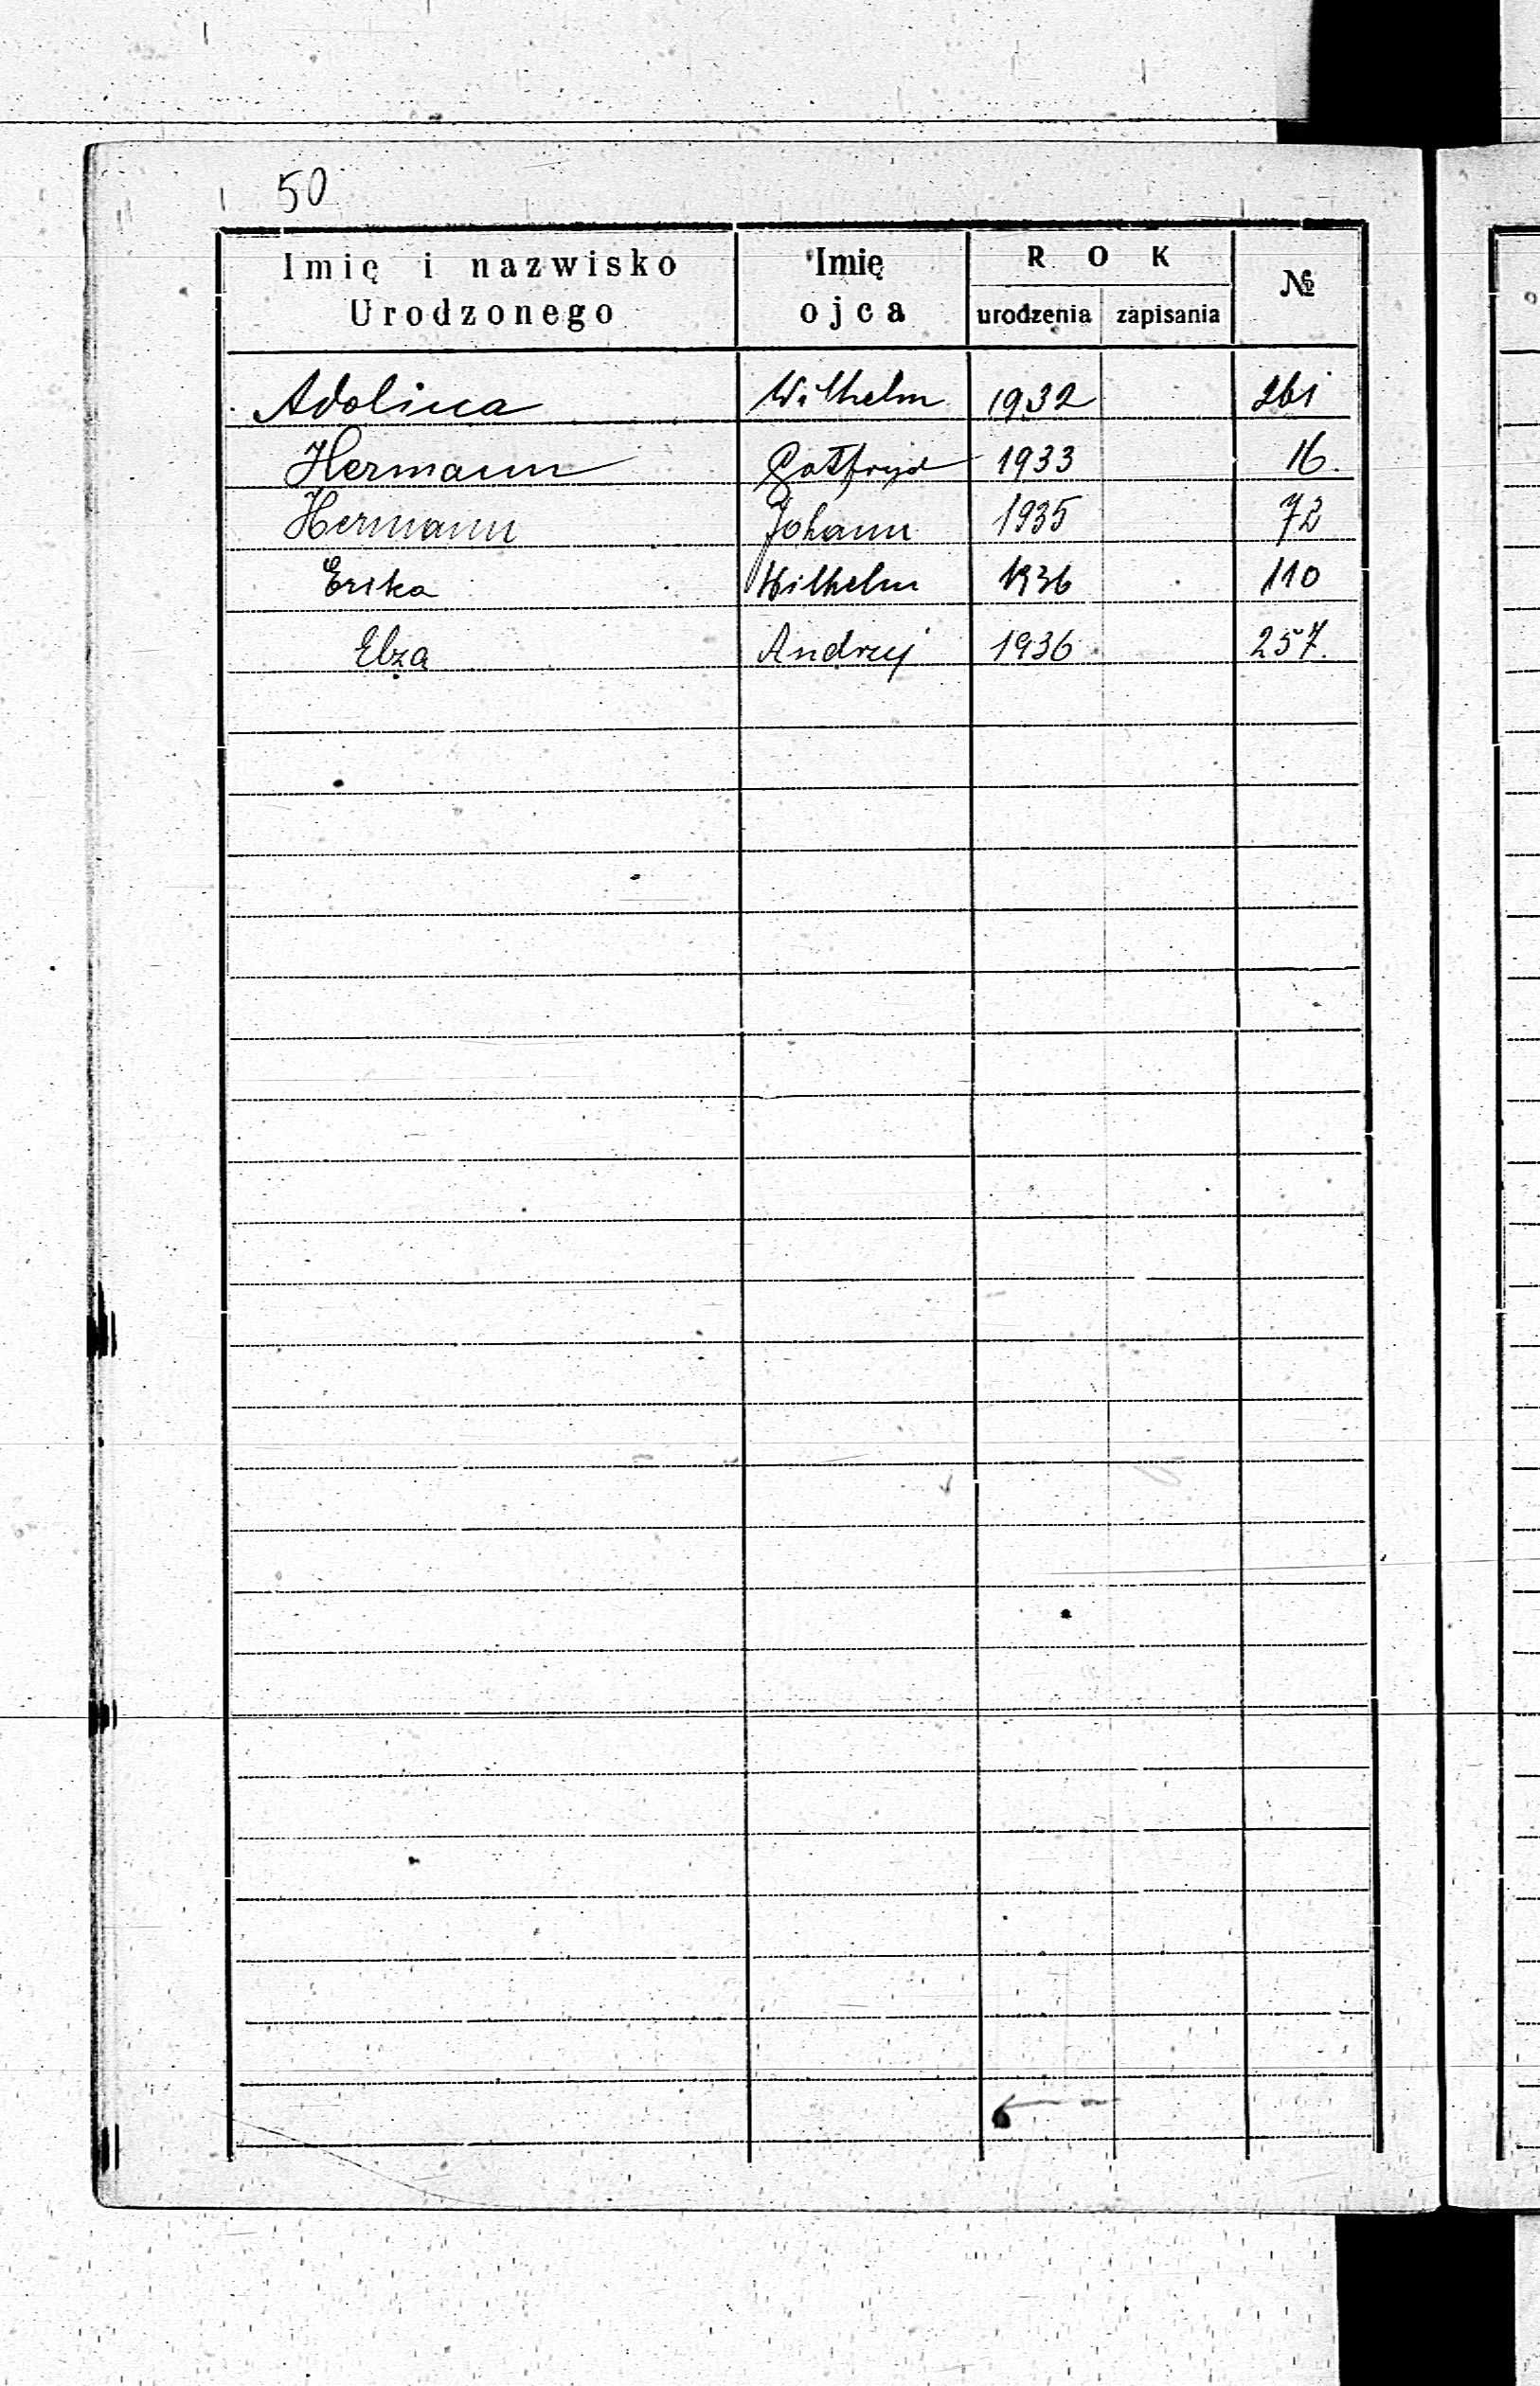 50
Imię i nazwisko Urodzonego Imię ojca ROK urodzenia zapisania №
Adolina Wilhelm 1932 261
Hermann Gottfryd 1933 16.
Hermann Johann 1935 72
Erika Wilhelm 1936 110
Elza Andrzej 1936 257.